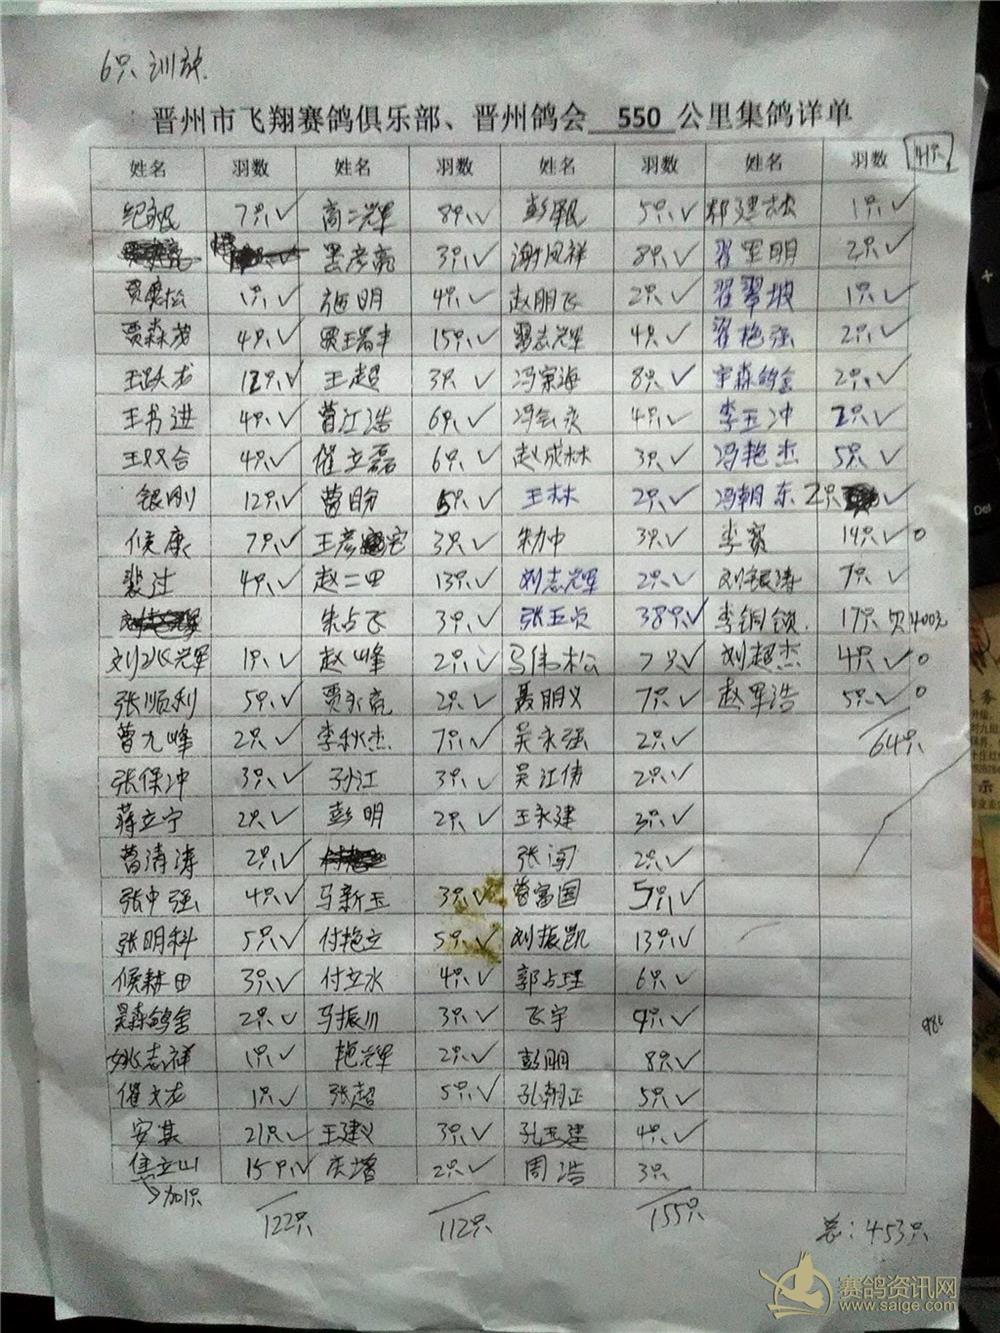 6只训放.
晋州市飞翔赛鸽俱乐部、晋州鸽会 550 公里集鸽详单
姓名 羽数 姓名 羽数 姓名 羽数 姓名 羽数 41只
7只✓ 高二辉 8只✓ 5只✓ 1只✓
3只✓ 谢风祥 8只✓ 翟军明 2只✓
1只✓ 4只✓ 赵朋飞 2只✓ 翟翠坡 1只✓
贾森茂 4只✓ 15只✓ 4只✓ 翟艳强 2只✓
王跃龙 12只✓ 王超 3只✓ 冯宗海 8只✓ 宇森鸽舍 2只✓
王书进 4只✓ 曹江浩 6只✓ 4只✓ 李玉冲 2只✓
王双合 4只✓ 催立磊 6只✓ 赵成林 3只✓ 冯艳杰 5只✓
银刚 12只✓ 曹盼 5只✓ 王林 2只✓ 冯朝东 2只 ✓
候康 7只✓ 王彦宅 3只✓ 3只✓ 李赛 14只✓0
裴过 4只✓ 赵二田 13只✓ 刘志辉 2只✓ 刘银涛 7只✓
朱占飞 3只✓ 张五贞 38只✓ 李铜锁. 17只欠400元
刘水辉 1只✓ 赵峰 2只✓ 马伟松 7只✓ 刘超杰 4只✓0
张顺利 5只✓ 贾永亮 2只✓ 聂朋义 7只✓ 赵军浩 5只✓0
曹九峰 2只✓ 李秋杰 7只✓ 吴永强 2只✓ 64只
张保冲 3只✓ 孙江 3只✓ 吴江伟 2只✓
蒋立宁 2只✓ 彭明 2只✓ 王永建 3只✓
曹清涛 2只✓ 张闯 2只✓
张中强 4只✓ 马新玉 3只✓ 曹富国 5只✓
张明科 5只✓ 付艳立 5只✓ 刘振凯 13只✓
候耕田 3只✓ 付立水 4只✓ 郭占理 6只✓
昊森鸽舍 2只✓ 马振川 3只✓ 飞宇 4只✓
姚志祥 1只✓ 艳辉 2只✓ 彭朋 8只✓
催文龙 1只✓ 张超 5只✓ 孔朝正 5只✓
安某 21只✓ 王建义 3只✓ 孔玉建 4只✓
焦立山 15只✓ 庆增 2只✓ 周浩 3只
加1只 122只 112只 155只 总:453只
赛鸽资讯网
www.saige.com